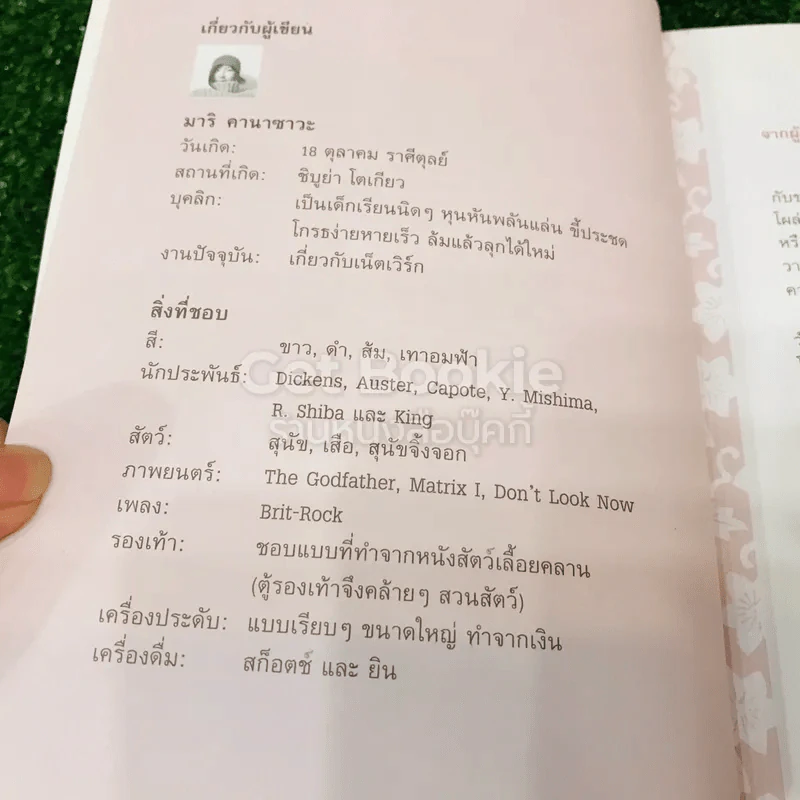 เกี่ยวกับผู้เขียน
มาริ คานาซาวะ
วันเกิด: 18 ตุลาคม ราศีตุลย์
สถานที่เกิด: ชิบูย่า โตเกียว
บุคลิก: เป็นเด็กเรียนนิดๆ หุนหันพลันแล่น ขี้ประชด
โกรธง่ายหายเร็ว ล้มแล้วลุกได้ใหม่
งานปัจจุบัน: เกี่ยวกับเน็ตเวิร์ก
สิ่งที่ชอบ
สี: ขาว, ดำ, ส้ม, เทาอมฟ้า
นักประพันธ์: Dickens, Auster, Capote, Y. Mishima,
R. Shiba และ King
สัตว์: สุนัข, เสือ, สุนัขจิ้งจอก
ภาพยนตร์: The Godfather, Matrix I, Don't Look Now
เพลง: Brit-Rock
รองเท้า: ชอบแบบที่ทำจากหนังสัตว์เลื้อยคลาน
(ตู้รองเท้าจึงคล้ายๆ สวนสัตว์)
เครื่องประดับ: แบบเรียบๆ ขนาดใหญ่ ทำจากเงิน
เครื่องดื่ม: สก็อตช์ และ ยิน
Got Bookie
ร้านหนังสือบุ๊คกี้